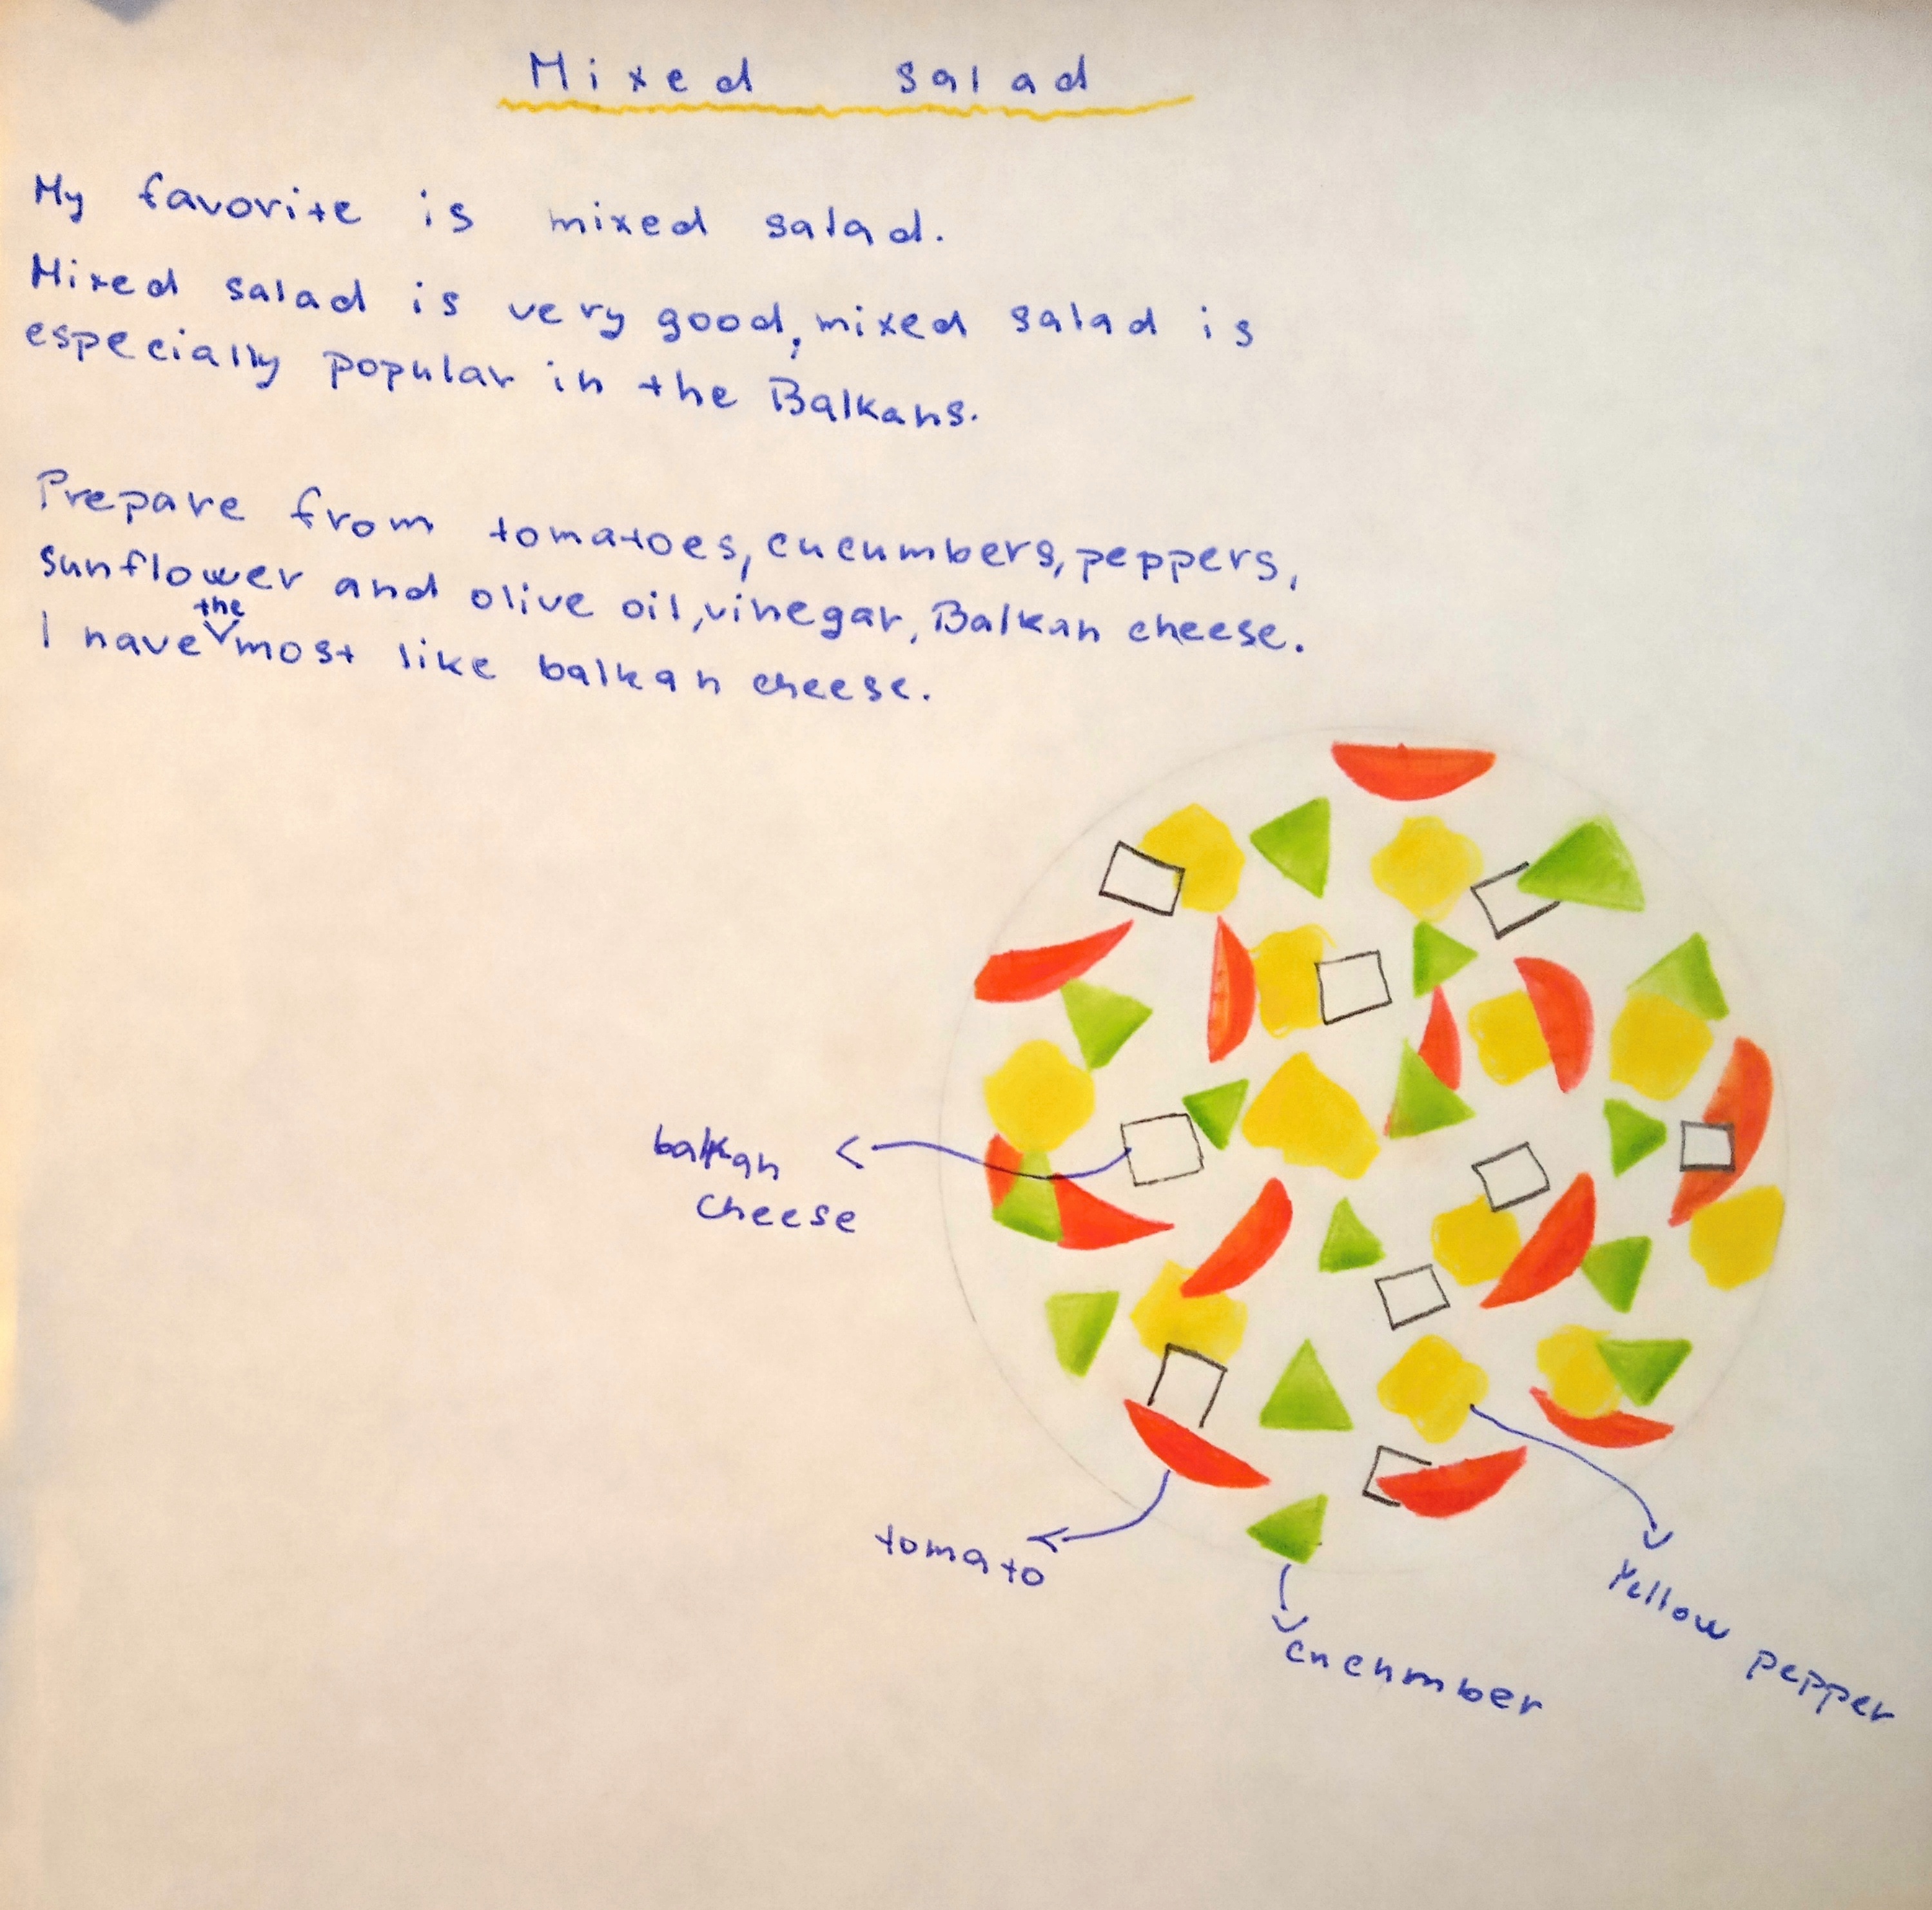 Mixed salad
My favorite is mixed salad.
Mixed salad is very good, mixed salad is
especially popular in the Balkans.
Prepare from tomatoes, cucumbers, peppers,
sunflower and olive oil, vinegar, Balkan cheese.
I have the most like balkan cheese.
balkan
cheese
tomato
cucumber
Yellow pepper